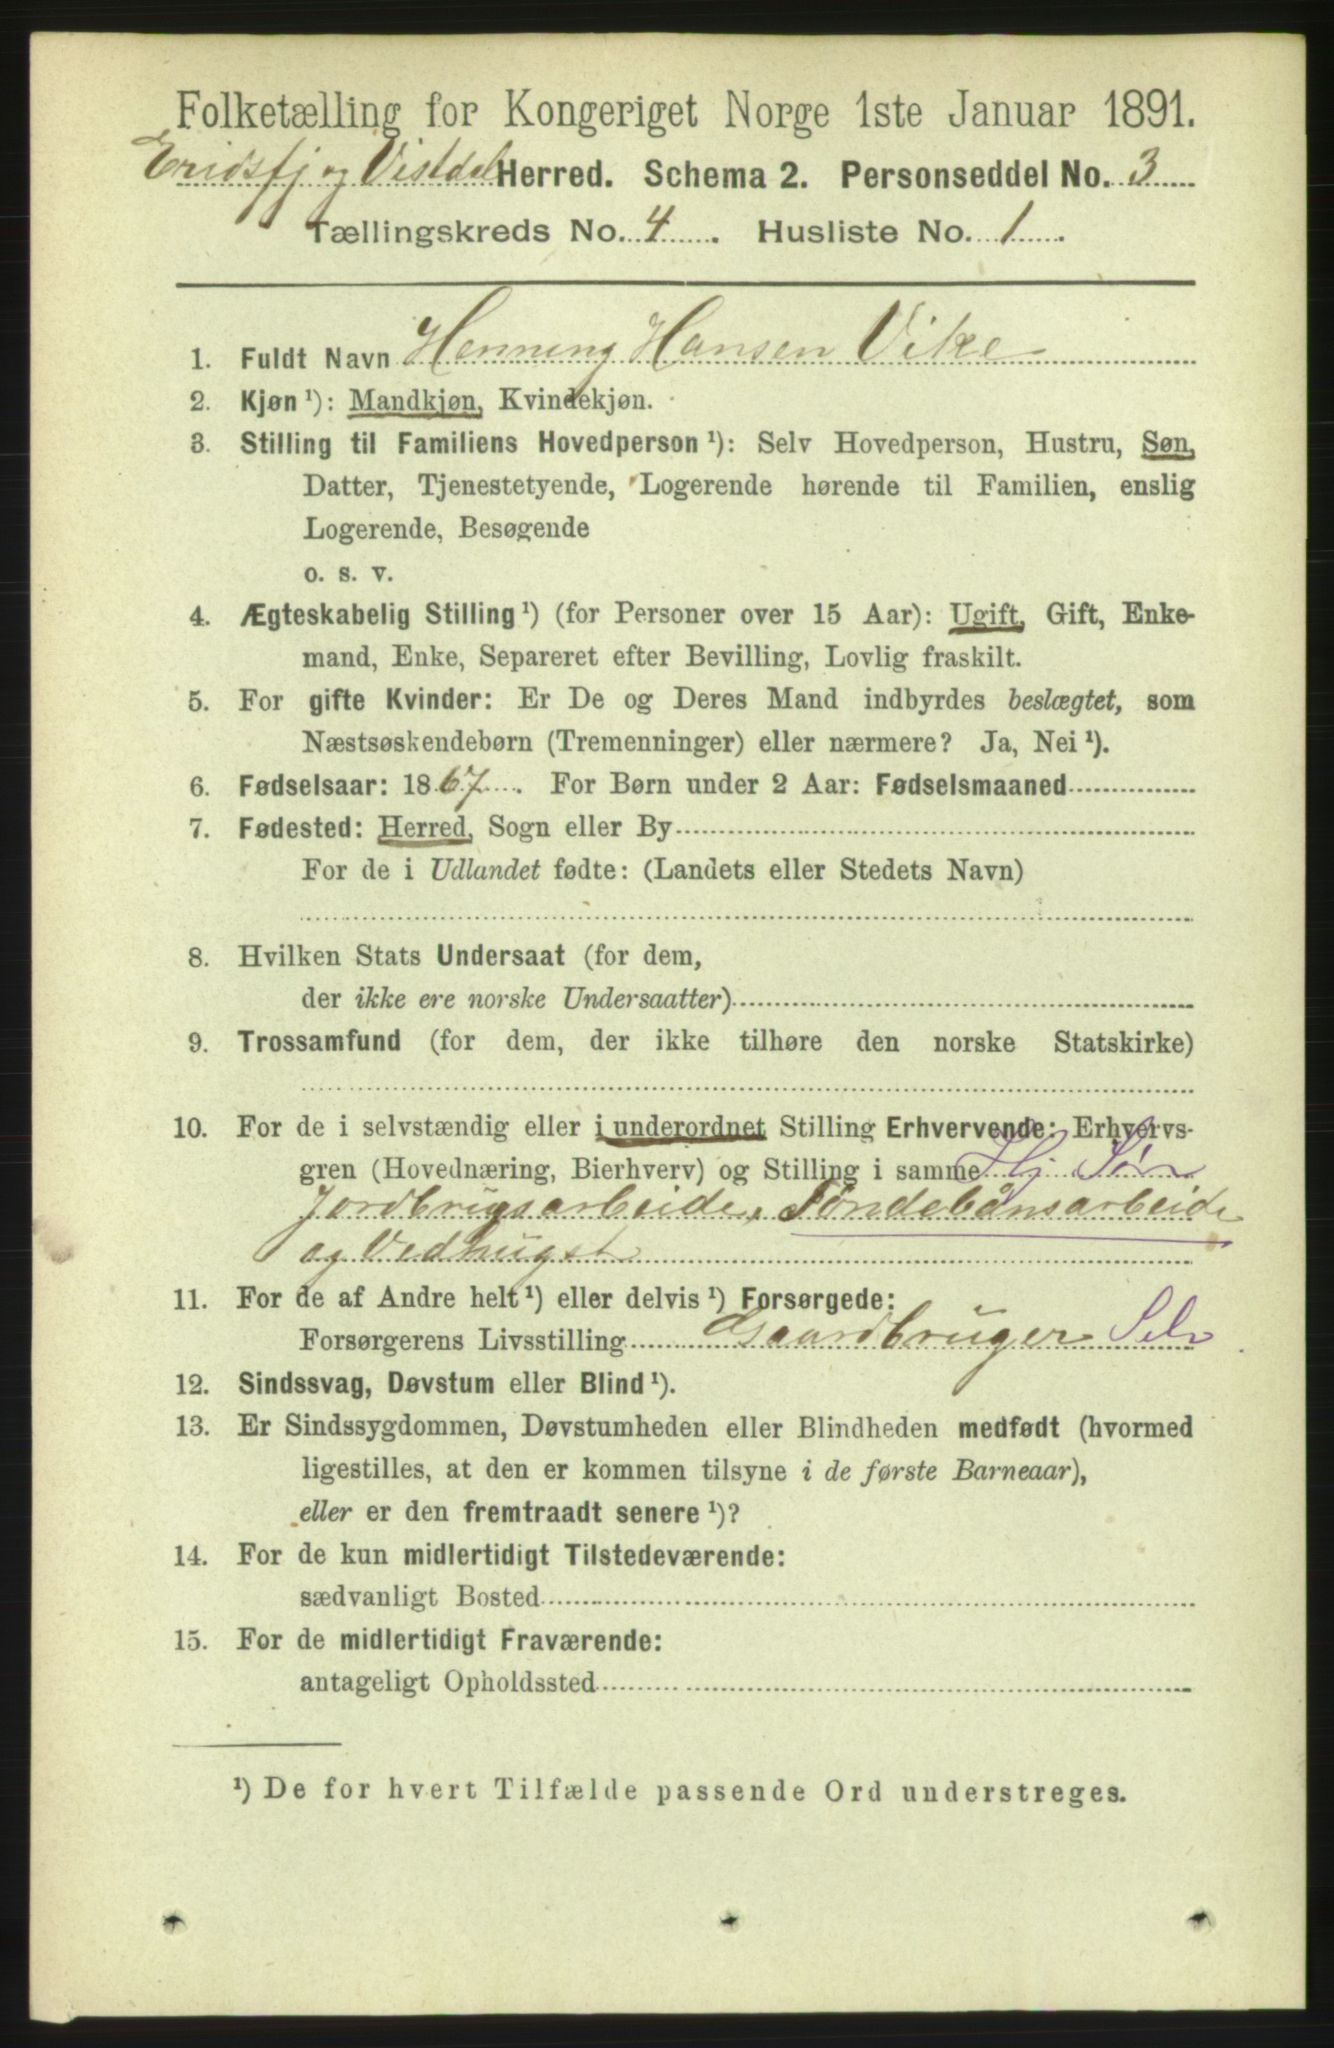 Folketælling for Kongeriget Norge 1ste Januar 1891.
Eridsfj og Vistdal Herred. Schema 2. Personseddel No. 3
Tællingskreds No. 4. Husliste No. 1.
1. Fuldt Navn Henning Hansen Vike
2. Kjøn ¹): Mandkjøn, Kvindekjøn.
3. Stilling til Familiens Hovedperson ¹): Selv Hovedperson, Hustru, Søn,
Datter, Tjenestetyende, Logerende hørende til Familien, enslig
Logerende, Besøgende
o. s. v.
4. Ægteskabelig Stilling ¹) (for Personer over 15 Aar): Ugift, Gift, Enke-
mand, Enke, Separeret efter Bevilling, Lovlig fraskilt.
5. For gifte Kvinder: Er De og Deres Mand indbyrdes beslægtet, som
Næstsøskendebørn (Tremenninger) eller nærmere? Ja, Nei ¹).
6. Fødselsaar: 1867. For Børn under 2 Aar: Fødselsmaaned
7. Fødested: Herred, Sogn eller By
For de i Udlandet fødte: (Landets eller Stedets Navn)
8. Hvilken Stats Undersaat (for dem,
der ikke ere norske Undersaatter)
9. Trossamfund (for dem, der ikke tilhøre den norske Statskirke)
10. For de i selvstændig eller i underordnet Stilling Erhvervende: Erhvervs-
gren (Hovednæring, Bierhverv) og Stilling i samme Hj. Søn
Jordbrugsarbeide, Tøndebånsarbeide
og Vedhugst
11. For de af Andre helt ¹) eller delvis ¹) Forsørgede:
Forsørgerens Livsstilling Gaardbruger Selv
12. Sindssvag, Døvstum eller Blind ¹).
13. Er Sindssygdommen, Døvstumheden eller Blindheden medfødt (hvormed
ligestilles, at den er kommen tilsyne i de første Barneaar),
eller er den fremtraadt senere ¹)?
14. For de kun midlertidigt Tilstedeværende:
sædvanligt Bosted
15. For de midlertidigt Fraværende:
antageligt Opholdssted
¹) De for hvert Tilfælde passende Ord understreges.